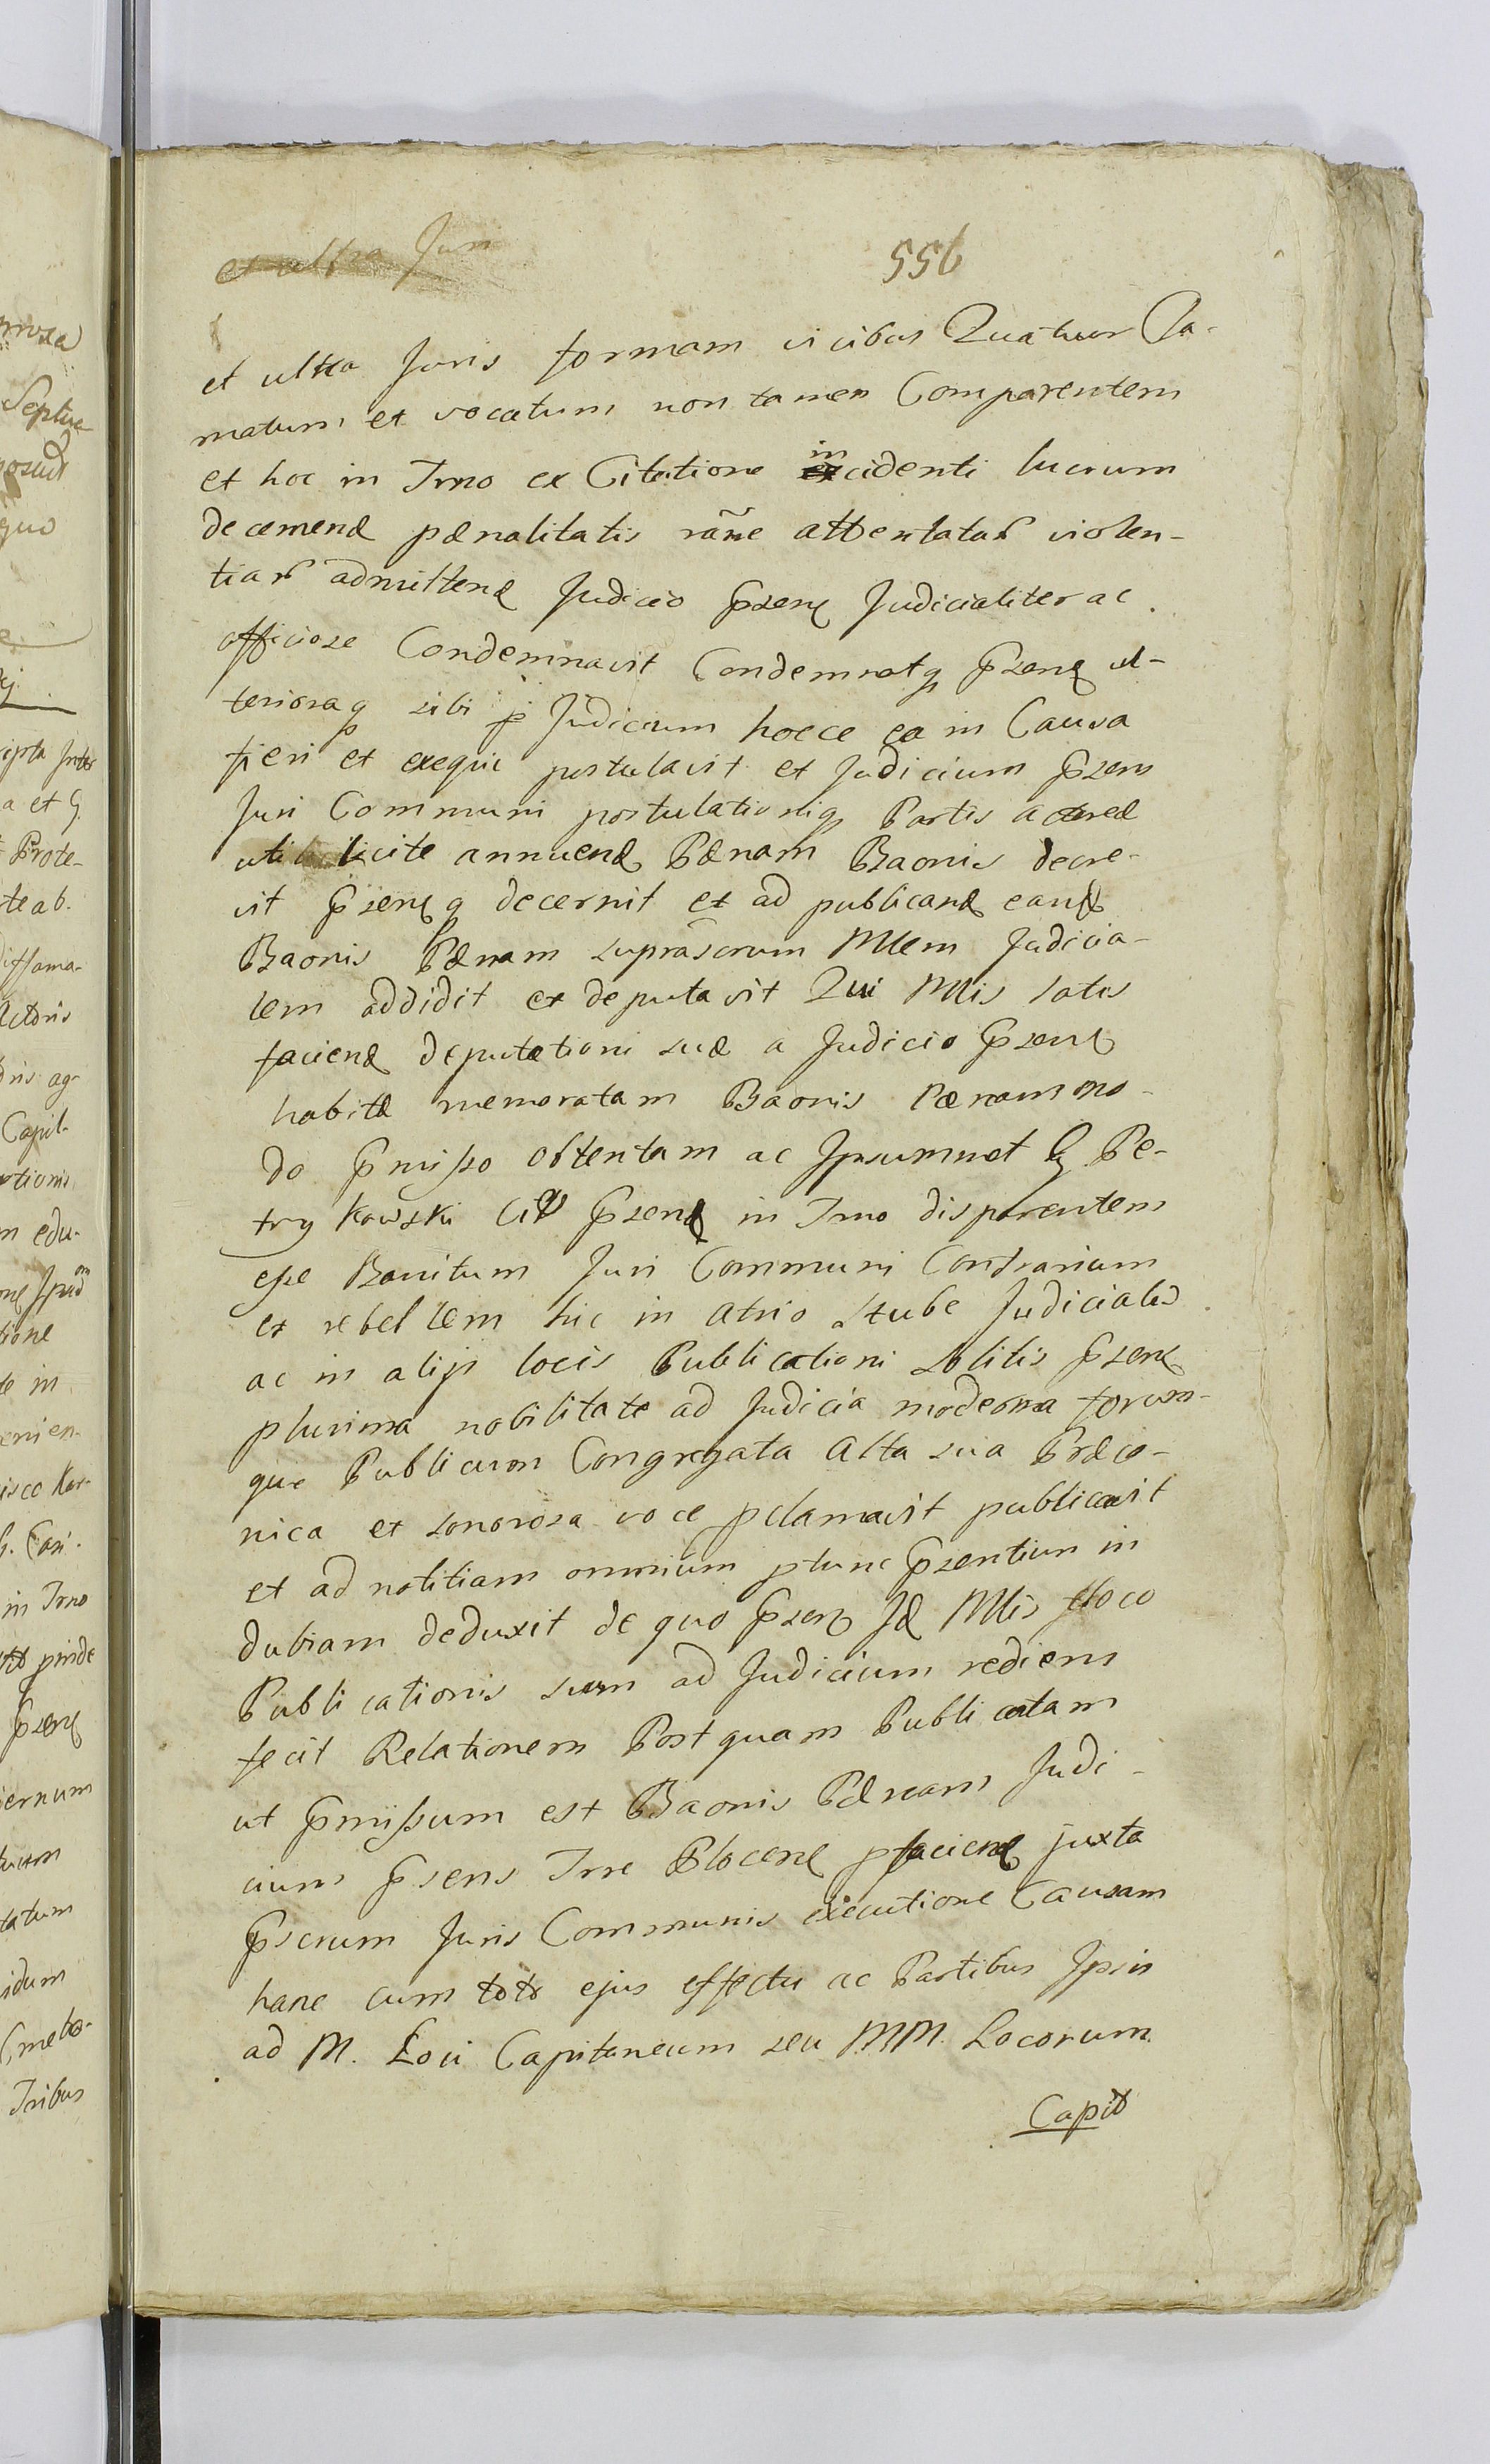 et ultra Juri
556
et ultra Juris formam vicibus Quatuor Cla-
matum et vocatum non tamen Comparentem
et hoc in Trno ex Citatione incidenti lucrum
decernend pænalitatis rãne attentatar violen-
tiar admittend Judicio psens Judicialiter ac
officiose Condemnavit Condemnatq psent ul-
terioraq sibi p Judicium hocce ea in Causa
fieri et exequi postulavit et Judicium psens
Juri Communi postulationiq Partis actoreæ
uti licite annuend Pænam Baonis decre-
vit psentq decernit et ad publicand eand
Baonis Pænam suprascrum Mlem Judicia-
lem addidit et deputavit Qui Mlis satis
faciend deputationi suæ a Judicio psent
habitæ memoratam Baonis Pænam mo-
do pmisso obtentam ac Ipsummet G Pe-
trykowski Citt psent in Trno disparentem
esse Banitum Juri Communi Contrarium
et rebellem hic in atrio Stubæ Judicialis
ac in alijs locis Publicationi solitis psent
plurima nobilitate ad Judicia moderna forum-
que Publicum Congregata Alta sua Præco-
nica et sonorosa voce pclamavit publicavit
et ad notitiam omnium ptunc psentium in
dubiam deduxit de quo psent Id Mlis e loco
Publicationis suum ad Judicium rediens
fecit Relationem Postquam Publicatam
ut pmissum est Baonis Pænam Judi-
cium psens Trre Plocen pfaciend juxta
pscrum Juris Communis executione Causam
hanc cum toto ejus effectu ac Partibus Ipsis
ad M. Loci Capitaneum seu MM. Locorum
Capit